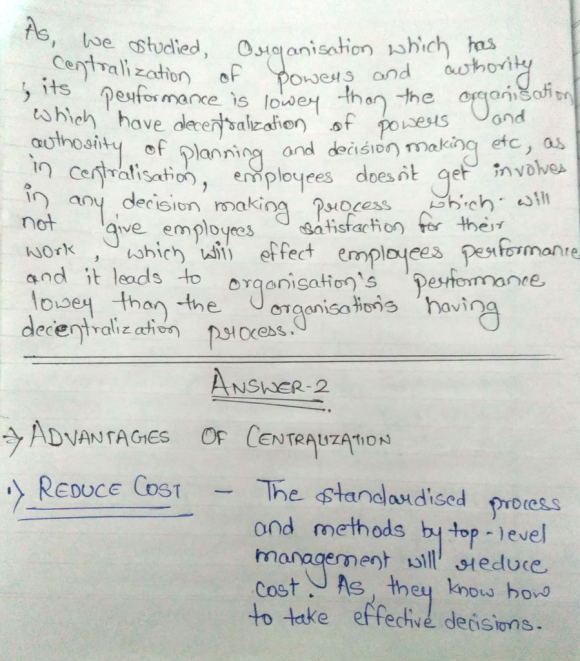 As, we studied, Organisation which has
Centralization of powers and authority
, its performance is lower than the organisation
which have decentralization of powers and
authority of planning and decision making etc, as
in centralisation, employees doesn't get involves
in any decision making process which will
not give employees satisfaction for their
work, which will effect employees performance
and it leads to organisation's performance
lower than the organisations having
decentralization process.
ANSWER-2
⇒ ADVANTAGES OF CENTRALIZATION
1) REDUCE COST - The standardised process
and methods by top-level
management will reduce
cost. As, they know how
to take effective decisions.